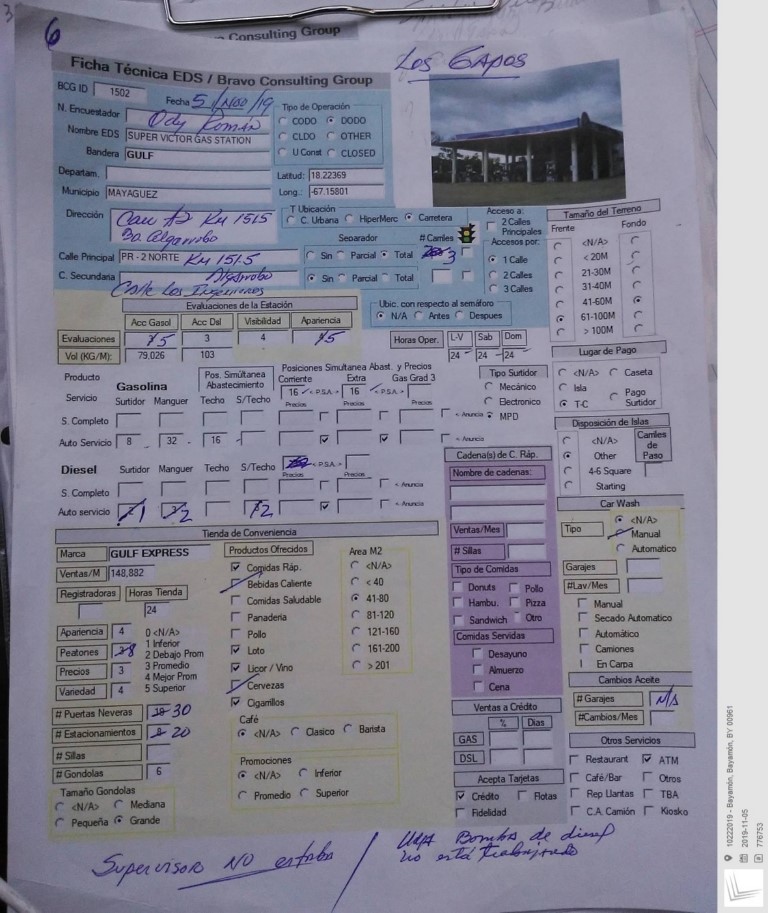 6
Consulting Group
Los Gapos
Ficha Técnica EDS / Bravo Consulting Group
BCG ID 1502
Fecha 5/Nov/19
N. Encuestador Ody Román
Nombre EDS SUPER VICTOR GAS STATION
Bandera GULF
Departam.
Municipio MAYAGUEZ
Tipo de Operación
CODO DODO
CLDO OTHER
U Const CLOSED
Latitud: 18.22369
Long.: -67.15801
Dirección Carr #2 Km 151.5
Bo. Algarrobo
T Ubicación
C. Urbana HiperMerc Carretera
Separador # Carriles
Calle Principal PR - 2 NORTE Km 151.5 Sin Parcial Total 3
Algarrobo
C. Secundaria Calle Los Ingenieros Sin Parcial Total
Acceso a:
2 Calles Principales
Accesos por:
1 Calle
2 Calles
3 Calles
Tamaño del Terreno
Frente Fondo
<N/A>
< 20M
21-30M
31-40M
41-60M
61-100M
> 100M
Evaluaciones de la Estación
Acc Gasol Acc Dsl Visibilidad Apariencia
Evaluaciones 5 3 4 5
Vol (KG/M): 79,026 103
Ubic. con respecto al semáforo
N/A Antes Despues
Horas Oper. L-V Sab Dom
24 24 24
Lugar de Pago
<N/A> Caseta
Isla Pago Surtidor
T-C
Producto
Servicio
Gasolina
Surtidor Manguer
Pos. Simúltanea Abastecimiento
Techo S/Techo
Posiciones Simultanea Abast. y Precios
Corriente Extra Gas Grad 3
16 < P.S.A. > 16 < P.S.A. >
Precios Precios Precios
Tipo Surtidor
Mecánico
Electronico
MPD
S. Completo < Anuncia
Auto Servicio 8 32 16 < Anuncia
Disposición de Islas
<N/A>
Other
4-6 Square
Starting
Carriles de Paso
Diesel Surtidor Manguer Techo S/Techo < P.S.A. >
Precios Precios
S. Completo < Anuncia
Auto servicio 1 2 2 < Anuncia
Cadena(s) de C. Ráp.
Nombre de cadenas:
Ventas/Mes
# Sillas
Tipo de Comidas
Donuts Pollo
Hambu. Pizza
Sandwich Otro
Comidas Servidas
Desayuno
Almuerzo
Cena
Car Wash
Tipo <N/A>
Manual
Automatico
Garajes
#Lav/Mes
Manual
Secado Automatico
Automático
Camiones
En Carpa
Tienda de Conveniencia
Marca GULF EXPRESS
Ventas/M 148,882
Registradoras Horas Tienda
24
Apariencia 4
Peatones 8
Precios 3
Variedad 4
0 <N/A>
1 Inferior
2 Debajo Prom
3 Promedio
4 Mejor Prom
5 Superior
# Puertas Neveras 30
# Estacionamientos 20
# Sillas
# Gondolas 6
Tamaño Gondolas
<N/A> Mediana
Pequeña Grande
Productos Ofrecidos
Comidas Ráp.
Bebidas Caliente
Comidas Saludable
Panaderia
Pollo
Loto
Licor / Vino
Cervezas
Cigarrillos
Area M2
<N/A>
< 40
41-80
81-120
121-160
161-200
> 201
Café
<N/A> Clasico Barista
Promociones
<N/A> Inferior
Promedio Superior
Ventas a Crédito
% Dias
GAS
DSL
Acepta Tarjetas
Crédito Flotas
Fidelidad
Cambios Aceite
# Garajes N/A
#Cambios/Mes
Otros Servicios
Restaurant ATM
Café/Bar Otros
Rep Llantas TBA
C.A. Camión Kiosko
Supervisor NO estaba
Una Bomba de diesel
no está trabajando
10222019 - Bayamón, Bayamón, BY 00961
2019-11-05
776753